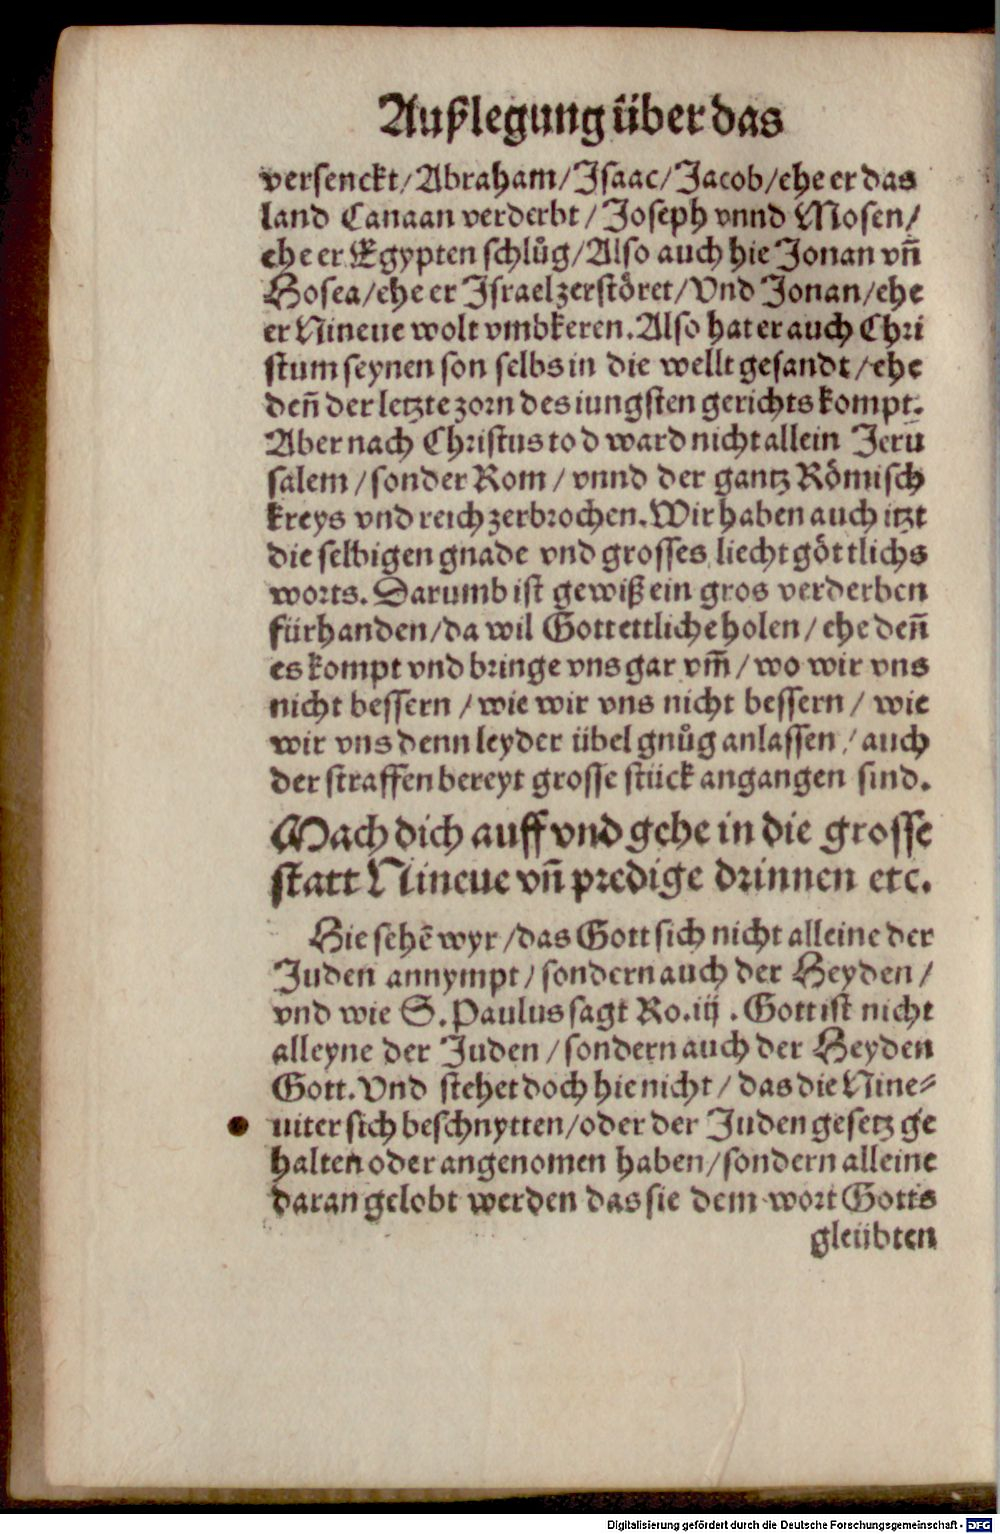 Außlegung über das
versenckt/Abraham/Isaac/Jacob/ehe er das
land Canaan verderbt/Joseph vnnd Mosen/
ehe er Egypten schlůg/Also auch hie Jonan vn̄
Hosea/ehe er Israel zerstöret/Vnd Jonan/ehe
er Nineue wolt vmbkeren.Also hat er auch Chri
stum seynen son selbs in die wellt gesandt/ehe
den̄ der letzte zorn des iungsten gerichts kompt.
Aber nach Christus tod ward nicht allein Jeru
salem/sonder Rom/vnnd der gantz Römisch
kreys vnd reich zerbrochen.Wir haben auch itzt
die selbigen gnade vnd grosses liecht göttlichs
worts.Darumb ist gewiß ein gros verderben
fürhanden/da wil Gott ettliche holen/ehe den̄
es kompt vnd bringe vns gar vm̄/wo wir vns
nicht bessern/wie wir vns nicht bessern/wie
wir vns denn leyder übel gnůg anlassen/auch
der straffen bereyt grosse stück angangen sind.
Mach dich auff vnd gehe in die grosse
statt Nineue vn̄ predige drinnen etc.
Hie sehē wyr/das Gott sich nicht alleine der
Juden annympt/sondern auch der Heyden/
vnd wie S.Paulus sagt Ro.iij.Gott ist nicht
alleyne der Juden/sondern auch der Heyden
Gott.Vnd stehet doch hie nicht/das die Nine⸗
uiter sich beschnytten/oder der Juden gesetz ge
halten oder angenomen haben/sondern alleine
daran gelobt werden das sie dem wort Gotts
gleübten
Digitalisierung gefördert durch die Deutsche Forschungsgemeinschaft - DFG